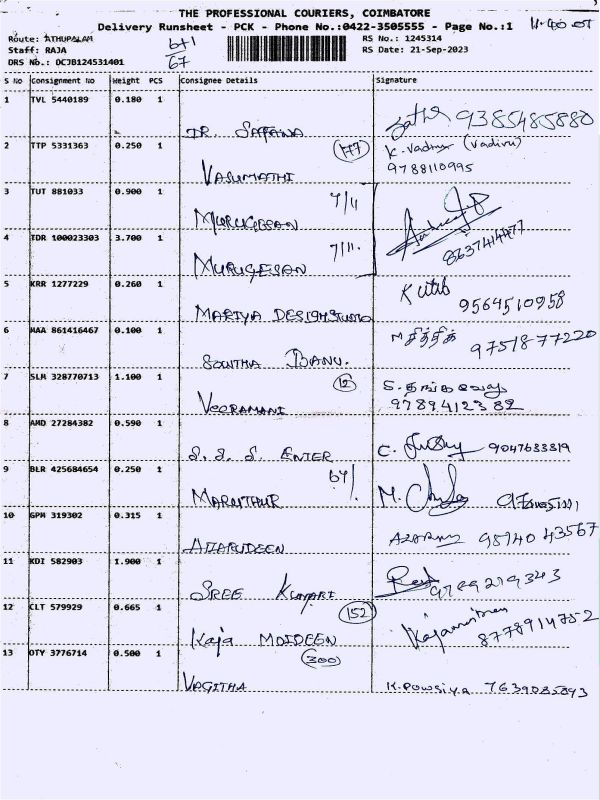 THE PROFESSIONAL COURIERS, COIMBATORE
Delivery Runsheet - PCK - Phone No.:0422-3505555 - Page No.:1
Route: ATHUPALAM RS No.: 1245314
Staff: RAJA RS Date: 21-Sep-2023
DRS No.: OCJB124531401 67
S No Consignment No Weight PCS Consignee Details Signature
1 TVL 5440189 0.180 1 9385485880
2 TTP 5331363 0.250 1 VASUMATHI 177 K. Vadivu (Vadivu)
9788110995
3 TUT 881033 0.900 1 MURUGESAN 7/11
4 TDR 100023303 3.700 1 MURUGESAN 7/11. 8637414477
5 KRR 1277229 0.260 1 MARIYA DESIGN STUDIO 9564510958
6 MAA 861416467 0.100 1 BANU. 9751877220
7 SLM 328770713 1.100 1 VEERAMANI 12
9789412382
8 AMD 27284382 0.590 1 S. S. S. ENTER C. 9047633819
9 BLR 425684654 0.250 1 67/. M.
10 GPM 319302 0.315 1 AZARUDEEN 95140 43567
11 KDI 582903 1.900 1 SREE KUMARI 9789219343
12 CLT 579929 0.665 1 KAJA MOIDEEN 152 8778914752
13 OTY 3776714 0.500 1 VAGITHA 300 K. Powsiya 7639085893